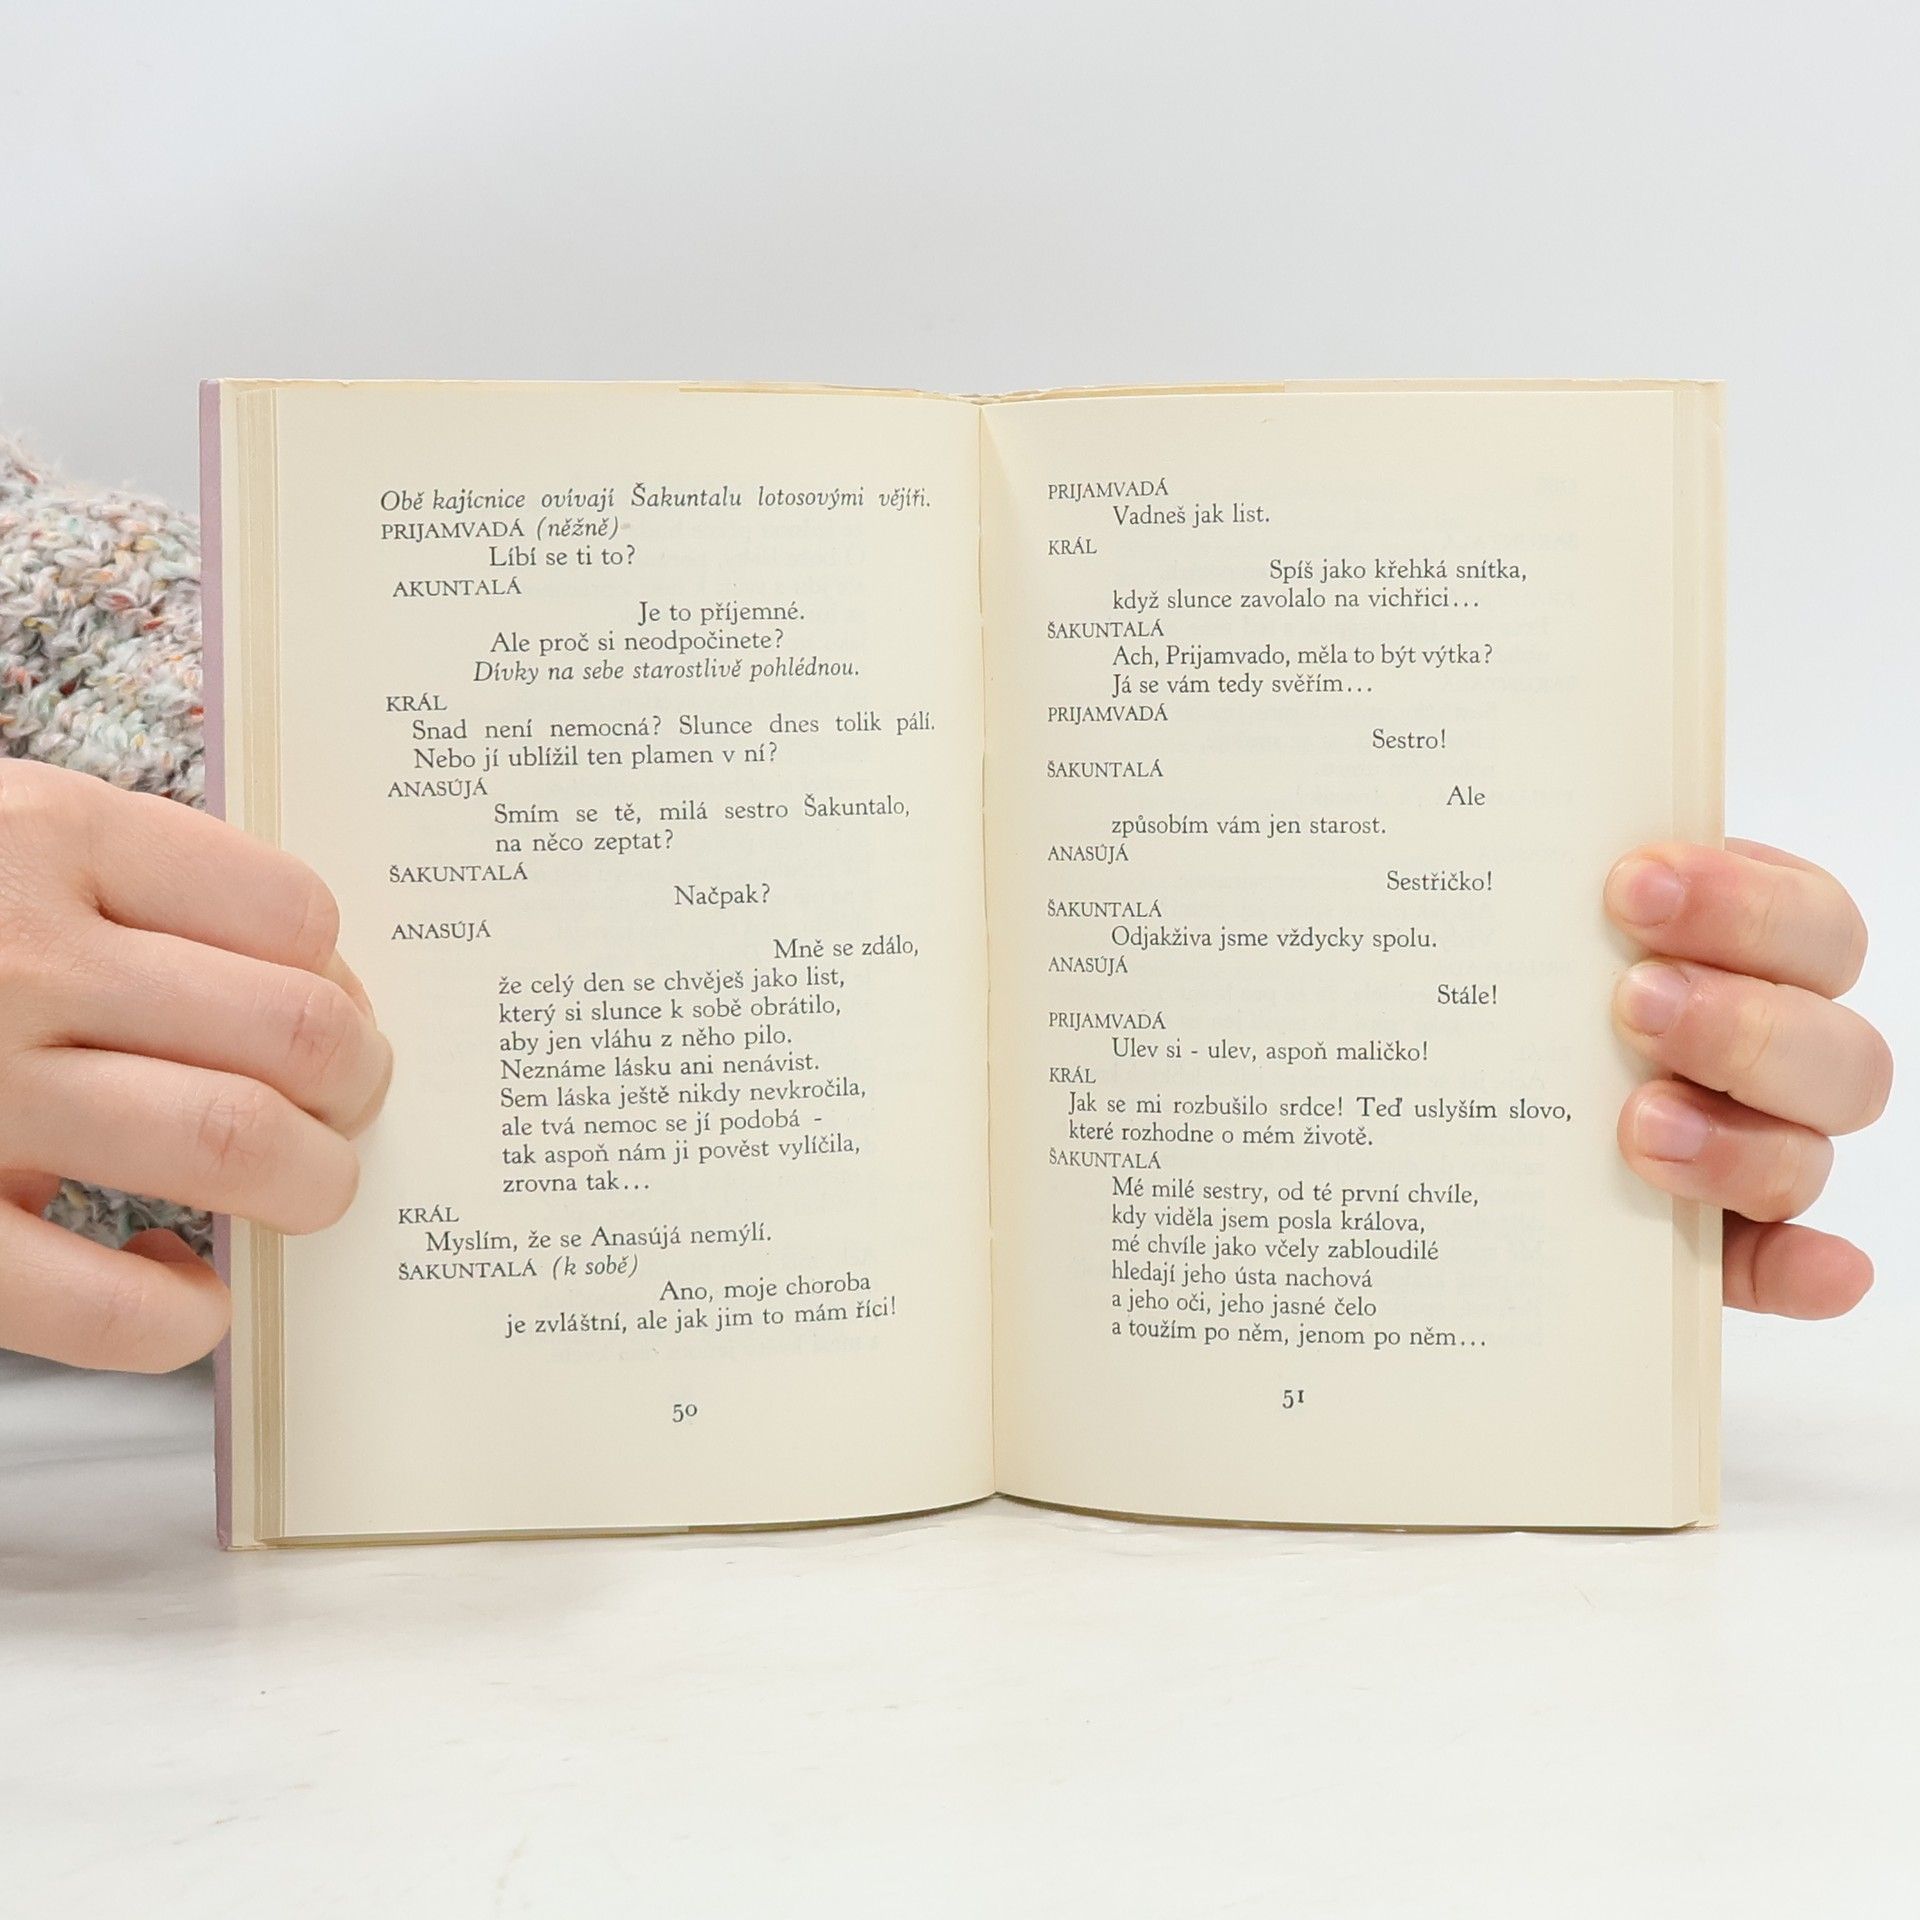 Obě kajícnice ovívají Šakuntalu lotosovými vějíři.
PRIJAMVADÁ (něžně)
Líbí se ti to?
AKUNTALÁ
Je to příjemné.
Ale proč si neodpočinete?
Dívky na sebe starostlivě pohlédnou.
KRÁL
Snad není nemocná? Slunce dnes tolik pálí.
Nebo jí ublížil ten plamen v ní?
ANASÚJÁ
Smím se tě, milá sestro Šakuntalo,
na něco zeptat?
ŠAKUNTALÁ
Načpak?
ANASÚJÁ
Mně se zdálo,
že celý den se chvěješ jako list,
který si slunce k sobě obrátilo,
aby jen vláhu z něho pilo.
Neznáme lásku ani nenávist.
Sem láska ještě nikdy nevkročila,
ale tvá nemoc se jí podobá -
tak aspoň nám ji pověst vylíčila,
zrovna tak...
KRÁL
Myslím, že se Anasújá nemýlí.
ŠAKUNTALÁ (k sobě)
Ano, moje choroba
je zvláštní, ale jak jim to mám říci!
50
PRIJAMVADÁ
Vadneš jak list.
KRÁL
Spíš jako křehká snítka,
když slunce zavolalo na vichřici...
ŠAKUNTALÁ
Ach, Prijamvado, měla to být výtka?
Já se vám tedy svěřím...
PRIJAMVADÁ
Sestro!
ŠAKUNTALÁ
Ale
způsobím vám jen starost.
ANASÚJÁ
Sestřičko!
ŠAKUNTALÁ
Odjakživa jsme vždycky spolu.
ANASÚJÁ
Stále!
PRIJAMVADÁ
Ulev si - ulev, aspoň maličko!
KRÁL
Jak se mi rozbušilo srdce! Teď uslyším slovo,
které rozhodne o mém životě.
ŠAKUNTALÁ
Mé milé sestry, od té první chvíle,
kdy viděla jsem posla králova,
mé chvíle jako včely zabloudilé
hledají jeho ústa nachová
a jeho oči, jeho jasné čelo
a toužím po něm, jenom po něm...
51